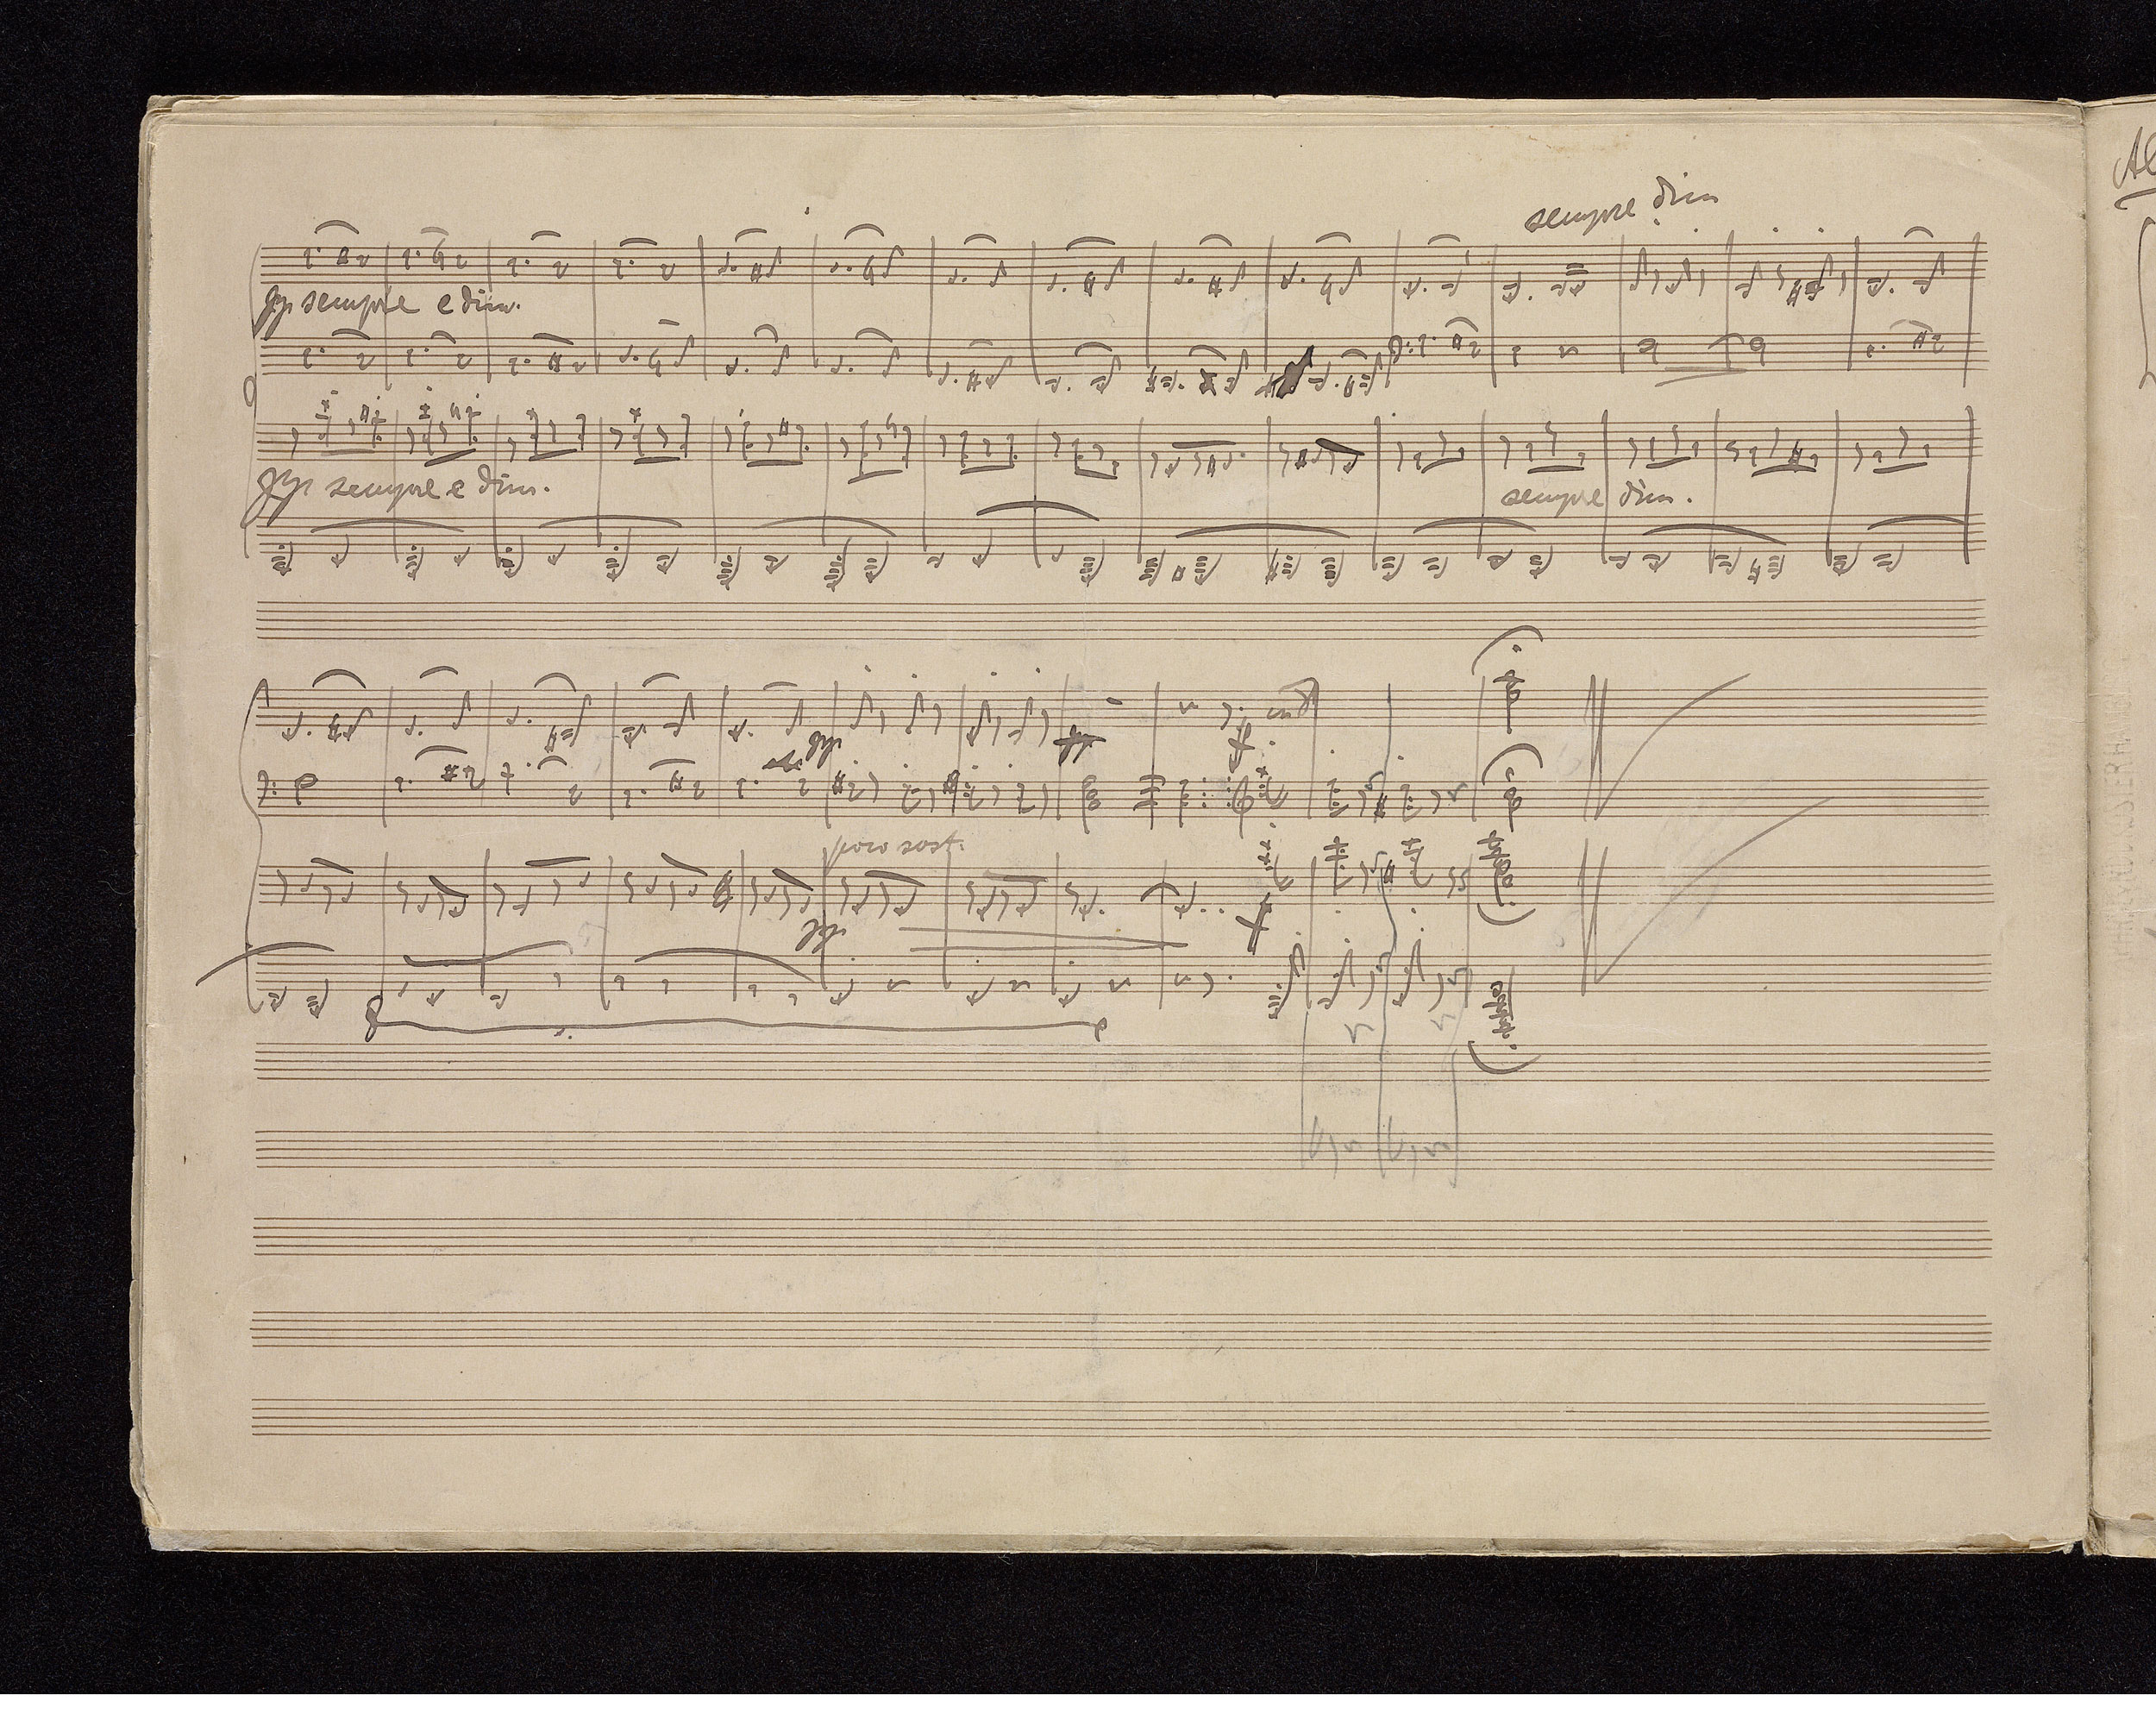 sempre dim
pp sempre e dim.
pp sempre e dim.
sempre dim.
pp
poco sost.
f
pp
f